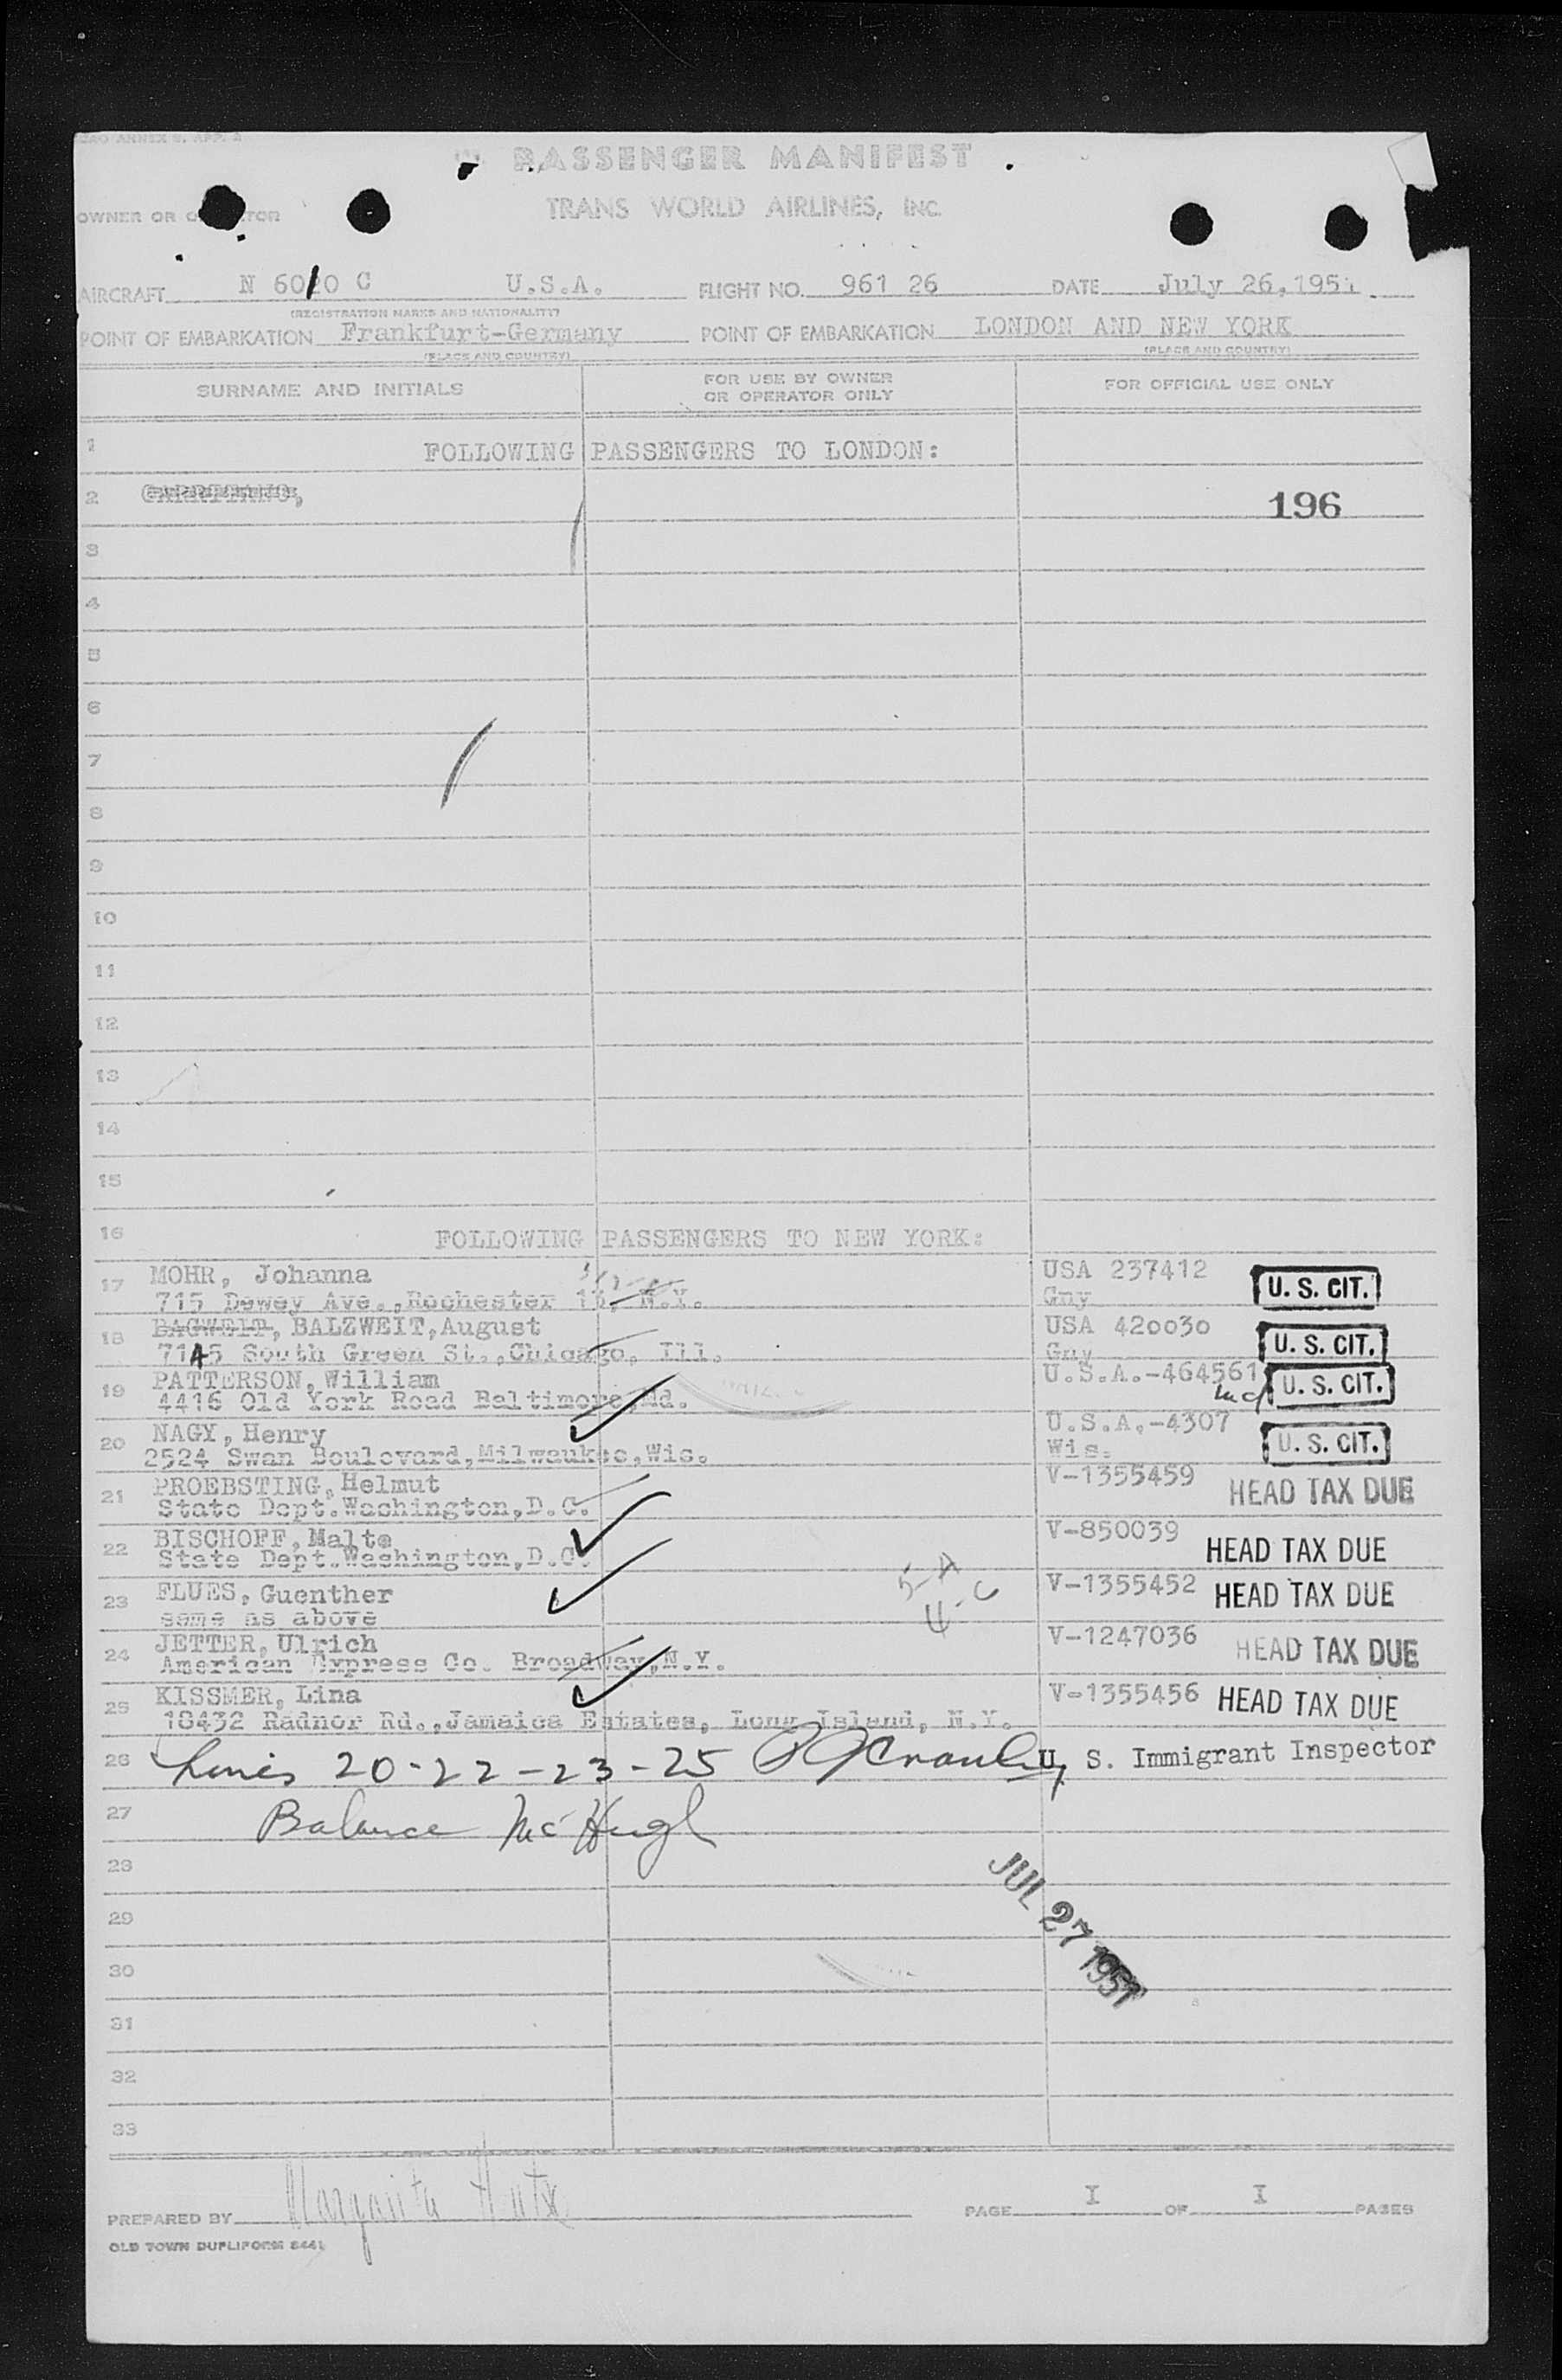 ICAO ANNEX 9, APP. 2
PASSENGER MANIFEST
OWNER OR OPERATOR TRANS WORLD AIRLINES, INC.
AIRCRAFT N 6010 C U.S.A. FLIGHT NO. 961 26 DATE July 26, 1951
(REGISTRATION MARKS AND NATIONALITY)
POINT OF EMBARKATION Frankfurt-Germany POINT OF EMBARKATION LONDON AND NEW YORK
(PLACE AND COUNTRY) (PLACE AND COUNTRY)
SURNAME AND INITIALS FOR USE BY OWNER OR OPERATOR ONLY FOR OFFICIAL USE ONLY
1 FOLLOWING PASSENGERS TO LONDON:
2 196
3
4
5
6
7
8
9
10
11
12
13
14
15
16 FOLLOWING PASSENGERS TO NEW YORK:
17 MOHR, Johanna USA 237412 U. S. CIT.
715 Dewey Ave.,Rochester N.Y. Gny
18 BAGWEIT, BALZWEIT,August USA 420030 U. S. CIT.
7145 South Green St.,Chicago, Ill. Gny
19 PATTERSON,William U.S.A.-464561 U. S. CIT.
4416 Old York Road Baltimore,Md. Md
20 NAGY, Henry U.S.A.-4307 U. S. CIT.
2524 Swan Boulevard,Milwaukee,Wis. Wis.
21 PROEBSTING,Helmut V-1355459 HEAD TAX DUE
State Dept.Washington,D.C.
22 BISCHOFF,Malte V-850039 HEAD TAX DUE
State Dept.Washington,D.C.
23 FLUES, Guenther V-1355452 HEAD TAX DUE
same as above
5-A
4-C
24 JETTER, Ulrich V-1247036 HEAD TAX DUE
American Express Co. Broadway,N.Y.
25 KISSMER, Lina V-1355456 HEAD TAX DUE
18432 Radnor Rd.,Jamaica Estates, Long Island, N.Y.
26 Lines 20-22-23-25 U. S. Immigrant Inspector
27 Balance McHugh
28
JUL 27 1951
29
30
31
32
33
PREPARED BY Margarita PAGE I OF I PAGES
OLD TOWN DUPLIFORM 8441